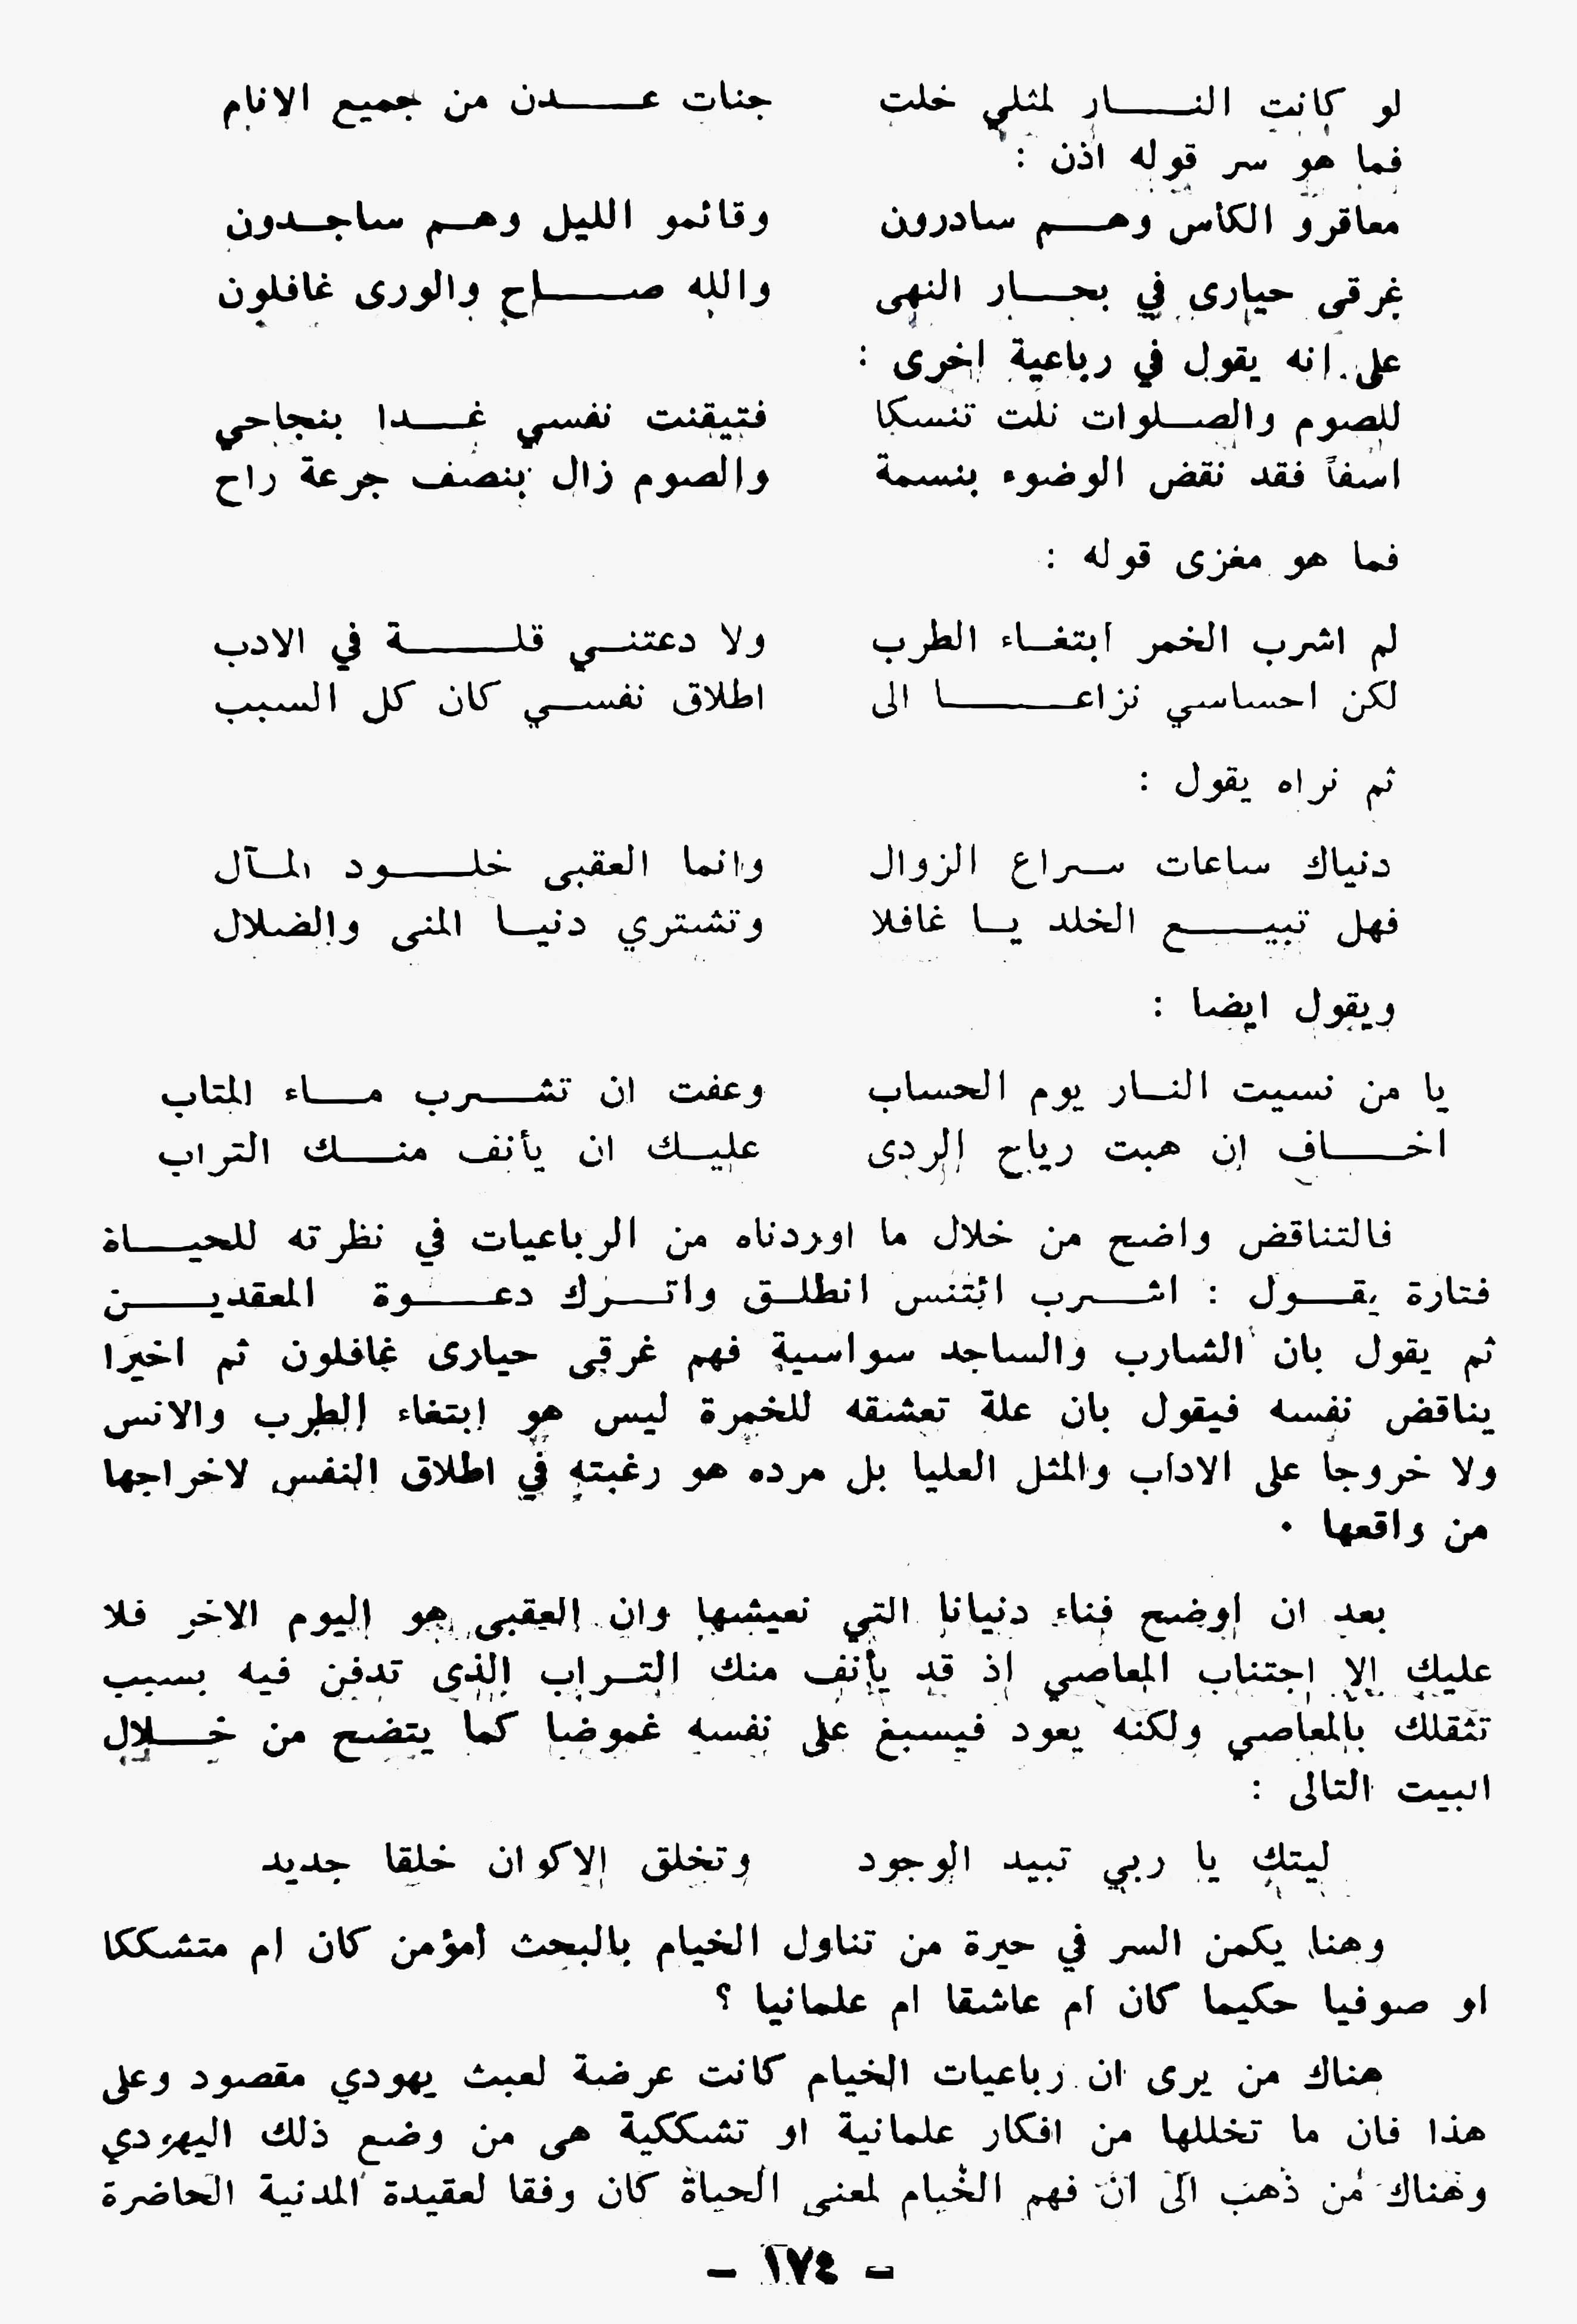 لو كانت النار لمثلي خلت جنات عدن من جميع الانام
فما هو سر قوله اذن :
معاقرو الكأس وهم سادرون وقائمو الليل وهم ساجدون
غرقى حيارى في بحار النهى والله صاح والورى غافلون
على انه يقول في رباعية اخرى :
للصوم والصلوات نلت تنسكا فتيقنت نفسي غدا بنجاحي
اسفاً فقد نقض الوضوء بنسمة والصوم زال بنصف جرعة راح
فما هو مغزى قوله :
لم اشرب الخمر ابتغاء الطرب ولا دعتني قلة في الادب
لكن احساسي نزاعا الى اطلاق نفسي كان كل السبب
ثم نراه يقول :
دنياك ساعات سراع الزوال وانما العقبى خلود المآل
فهل تبيع الخلد يا غافلا وتشتري دنيا المنى والضلال
ويقول ايضا :
يا من نسيت النار يوم الحساب وعفت ان تشرب ماء المتاب
اخاف إن هبت رياح الردى عليك ان يأنف منك التراب
فالتناقض واضح من خلال ما اوردناه من الرباعيات في نظرته للحياة
فتارة يقول : اشرب ائتنس انطلق واترك دعوة المعقدين
ثم يقول بان الشارب والساجد سواسية فهم غرقى حيارى غافلون ثم اخيرا
يناقض نفسه فيقول بان علة تعشقه للخمرة ليس هو إبتغاء الطرب والانس
ولا خروجا على الاداب والمثل العليا بل مرده هو رغبته في اطلاق النفس لاخراجها
من واقعها ٠
بعد ان اوضح فناء دنيانا التي نعيشها وان العقبى هو اليوم الاخر فلا
عليك إلا اجتناب المعاصي اذ قد يأنف منك التراب الذى تدفن فيه بسبب
تثقلك بالمعاصي ولكنه يعود فيسبغ على نفسه غموضا كما يتضح من خلال
البيت التالى :
ليتك يا ربي تبيد الوجود وتخلق الاكوان خلقا جديد
وهنا يكمن السر في حيرة من تناول الخيام بالبحث أمؤمن كان ام متشككا
او صوفيا حكيما كان ام عاشقا ام علمانيا ؟
هناك من يرى ان رباعيات الخيام كانت عرضة لعبث يهودي مقصود وعلى
هذا فان ما تخللها من افكار علمانية او تشككية هى من وضع ذلك اليهودي
وهناك من ذهب الى ان فهم الخيام لمعنى الحياة كان وفقا لعقيدة المدنية الحاضرة
– ١٧٤ –